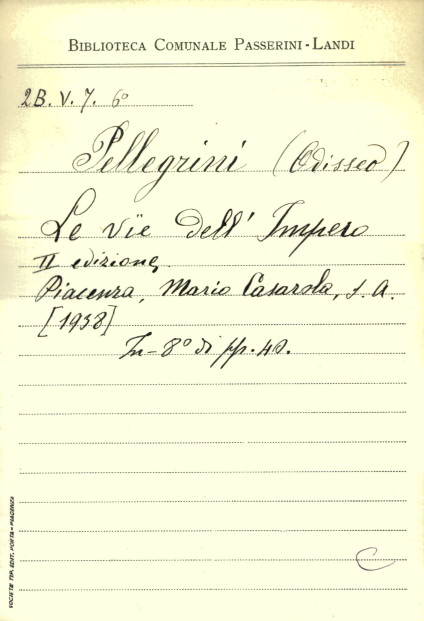 BIBLIOTECA COMUNALE PASSERINI-LANDI
2B. V. 7. 6º
Pellegrini (Odisseo)
Le vie dell' Impero
II edizione,
Piacenza, Mario Casarola, s. A.
[1938]
In-8º di pp. 40.
SOCIETÀ TIP. EDIT. PORTA - PIACENZA
C